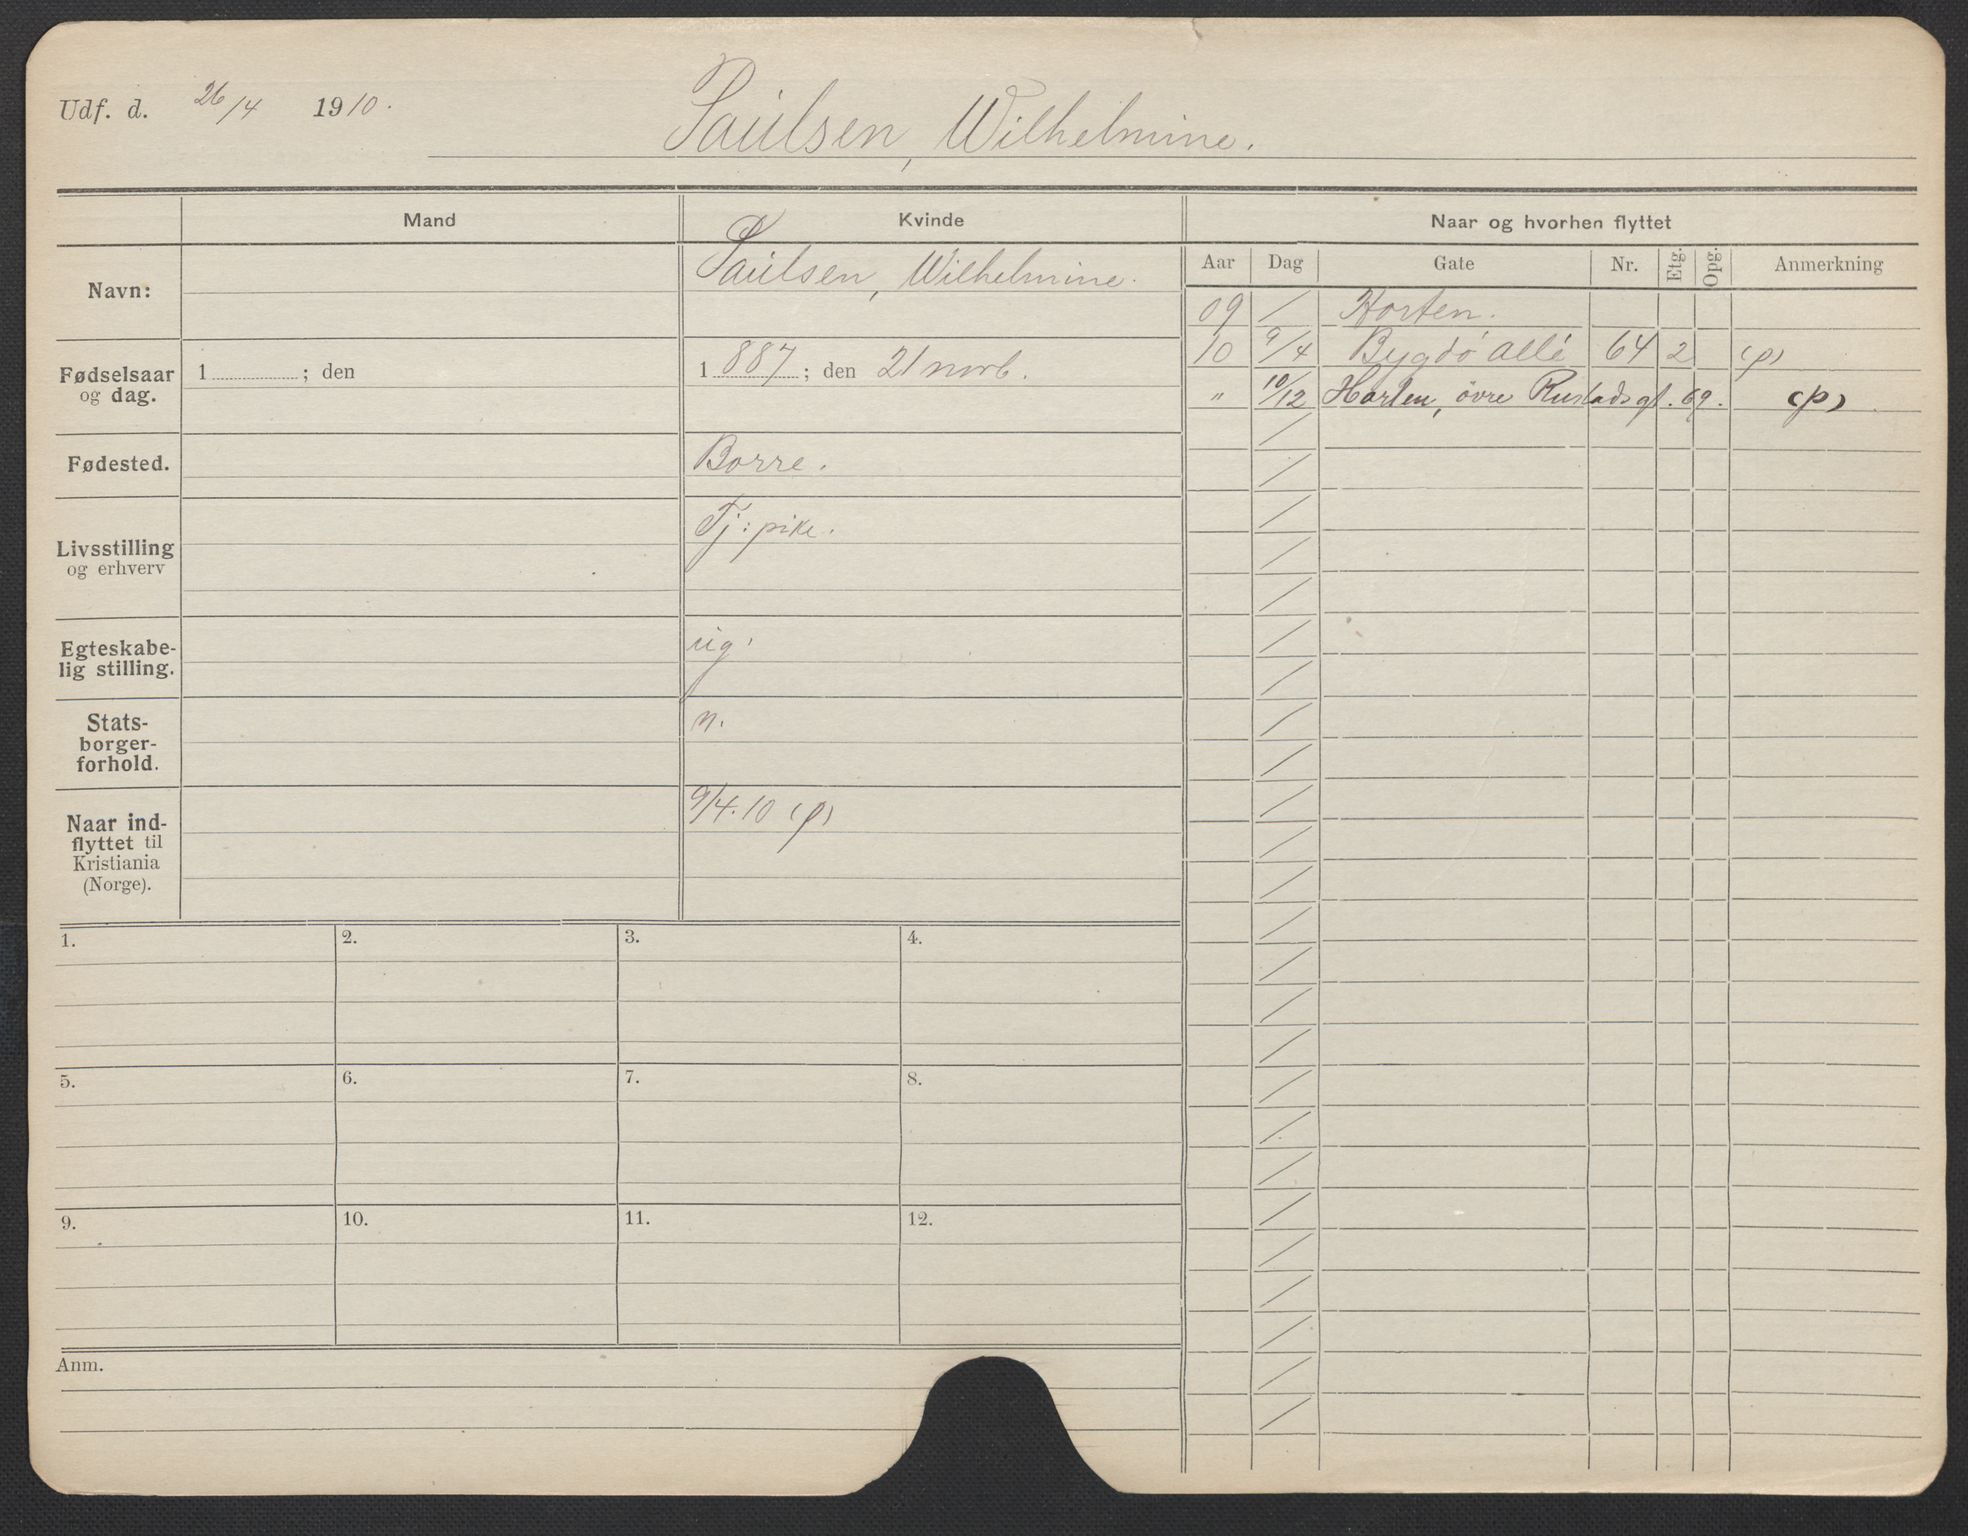 Udf. d. 26/4 1910.
Paulsen, Wilhelmine.
Mand Kvinde Naar og hvorhen flyttet
Aar Dag Gate Nr. Etg. Opg. Anmerkning
Navn: Paulsen, Wilhelmine.
09 / Horten.
10 9/4 Bygdö Allé 64 2 (p)
" 10/12 Horten, övre Rustadsgt. 69. (p)
Fødselsaar og dag. 1 ; den 1 887 ; den 21 novb.
Fødested. Borre.
Livsstilling og erhverv Tj: pike.
Egteskabe-
lig stilling. ug.
Stats-
borger-
forhold. n.
Naar ind-
flyttet til
Kristiania
(Norge). 9/4.10 (p)
1. 2. 3. 4.
5. 6. 7. 8.
9. 10. 11. 12.
Anm.